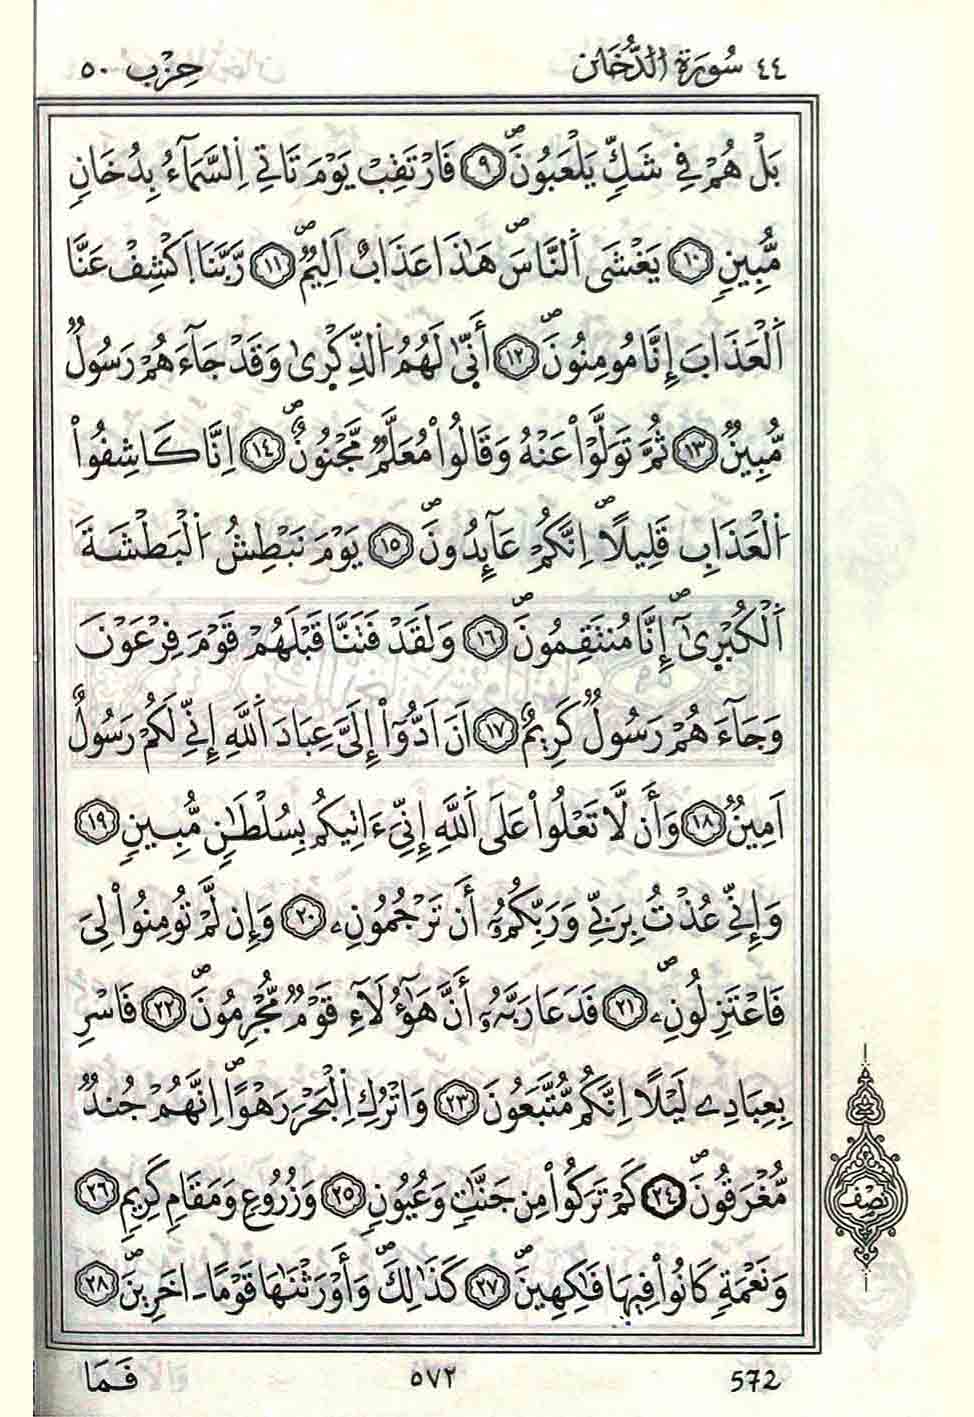 ٤٤ سُورَةُ الدُّخَانِ حِزْب ٥٠
بَلْ هُمْ فِے شَكِّ يَلْعَبُونَۖ ٩ فَارْتَقِبْ يَوْمَ تَاتِے اِ۬لسَّمَآءُ بِدُخَانٖ
مُّبِينٖ ١٠ يَغْشَي اَ۬لنَّاسَۖ هَٰذَا عَذَابٌ اَلِيمٌۖ ١١ رَّبَّنَا اَ۪كْشِفْ عَنَّا
اَ۬لْعَذَابَ إِنَّا مُومِنُونَۖ ١٢ أَنّ۪يٰ لَهُمُ اُ۬لذِّكْر۪يٰ وَقَدْ جَآءَهُمْ رَسُولٞ
مُّبِينٞ ١٣ ثُمَّ تَوَلَّوْاْ عَنْهُ وَقَالُواْ مُعَلَّمٞ مَّجْنُونٌۖ ١٤ اِنَّا كَاشِفُواْ
اُ۬لْعَذَابِ قَلِيلاًۖ اِنَّكُمْ عَآئِدُونَۖ ١٥ يَوْمَ نَبْطِشُ اُ۬لْبَطْشَةَ
اَ۬لْكُبْر۪يٰٓۖ إِنَّا مُنتَقِمُونَۖ ١٦ وَلَقَدْ فَتَنَّا قَبْلَهُمْ قَوْمَ فِرْعَوْنَ
وَجَآءَهُمْ رَسُولٞ كَرِيمٌ ١٧ اَنَ اَدُّوٓاْ إِلَيَّ عِبَادَ اَ۬للَّهِ إِنِّے لَكُمْ رَسُولٌ
اَمِينٞ ١٨ وَأَن لَّا تَعْلُواْ عَلَي اَ۬للَّهِ إِنِّيَ ءَاتِيكُم بِسُلْطَٰنٖ مُّبِينٖ ١٩
وَإِنِّے عُذْتُ بِرَبِّے وَرَبِّكُمُۥٓ أَن تَرْجُمُونِۦ ٢٠ وَإِن لَّمْ تُومِنُواْ لِيَ
فَاعْتَزِلُونِۦۖ ٢١ فَدَعَا رَبَّهُۥٓ أَنَّ هَٰٓؤُلَآءِ قَوْمٞ مُّجْرِمُونَۖ ٢٢ فَاسْرِ
بِعِبَادِے لَيْلاً اِنَّكُم مُّتَّبَعُونَ ٢٣ وَاتْرُكِ اِ۬لْبَحْرَ رَهْواًۖ اِنَّهُمْ جُندٞ
مُّغْرَقُونَۖ ٢٤ كَمْ تَرَكُواْ مِن جَنَّٰتٖ وَعُيُونٖ ٢٥ وَزُرُوعٖ وَمَقَامٖ كَرِيمٖ ٢٦
وَنَعْمَةٖ كَانُواْ فِيهَا فَٰكِهِينَۖ ٢٧ كَذَٰلِكَۖ وَأَوْرَثْنَٰهَا قَوْماً ـ اخَرِينَۖ ٢٨
نِصْف
فَمَا ٥٧٢ 572